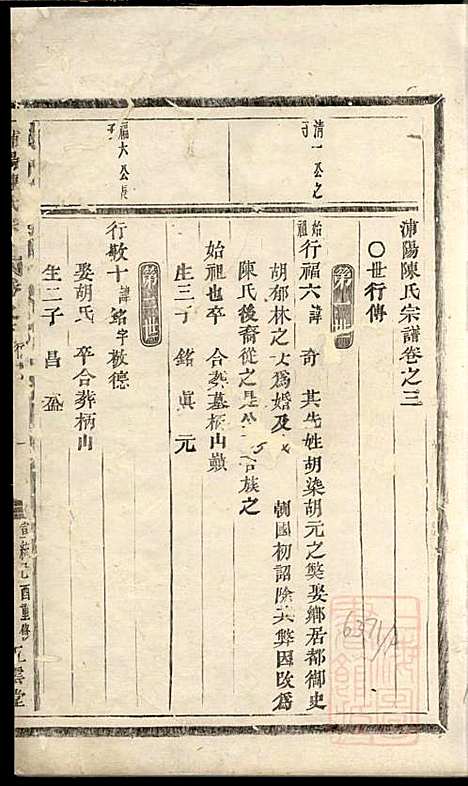 浦陽陳氏宗譜卷之三
○世行傳
第一世
清一公之子
始祖行福六 諱 奇 其先姓胡染胡元之獘娶鄉居都御史
胡郁林之女爲婚及 朝國初詔除其弊因改爲
陳氏後裔從之是 合族之
始祖也卒 合葬墓柄山巔
生三子 銘 眞 元
第二世
福六公長子
行敬十 諱 銘 字 敬德
娶胡氏 卒合葬柄山
生二子 昌 盈
浦陽陳氏宗譜卷之三 行傳 一 宣統己酉重修
6371/4